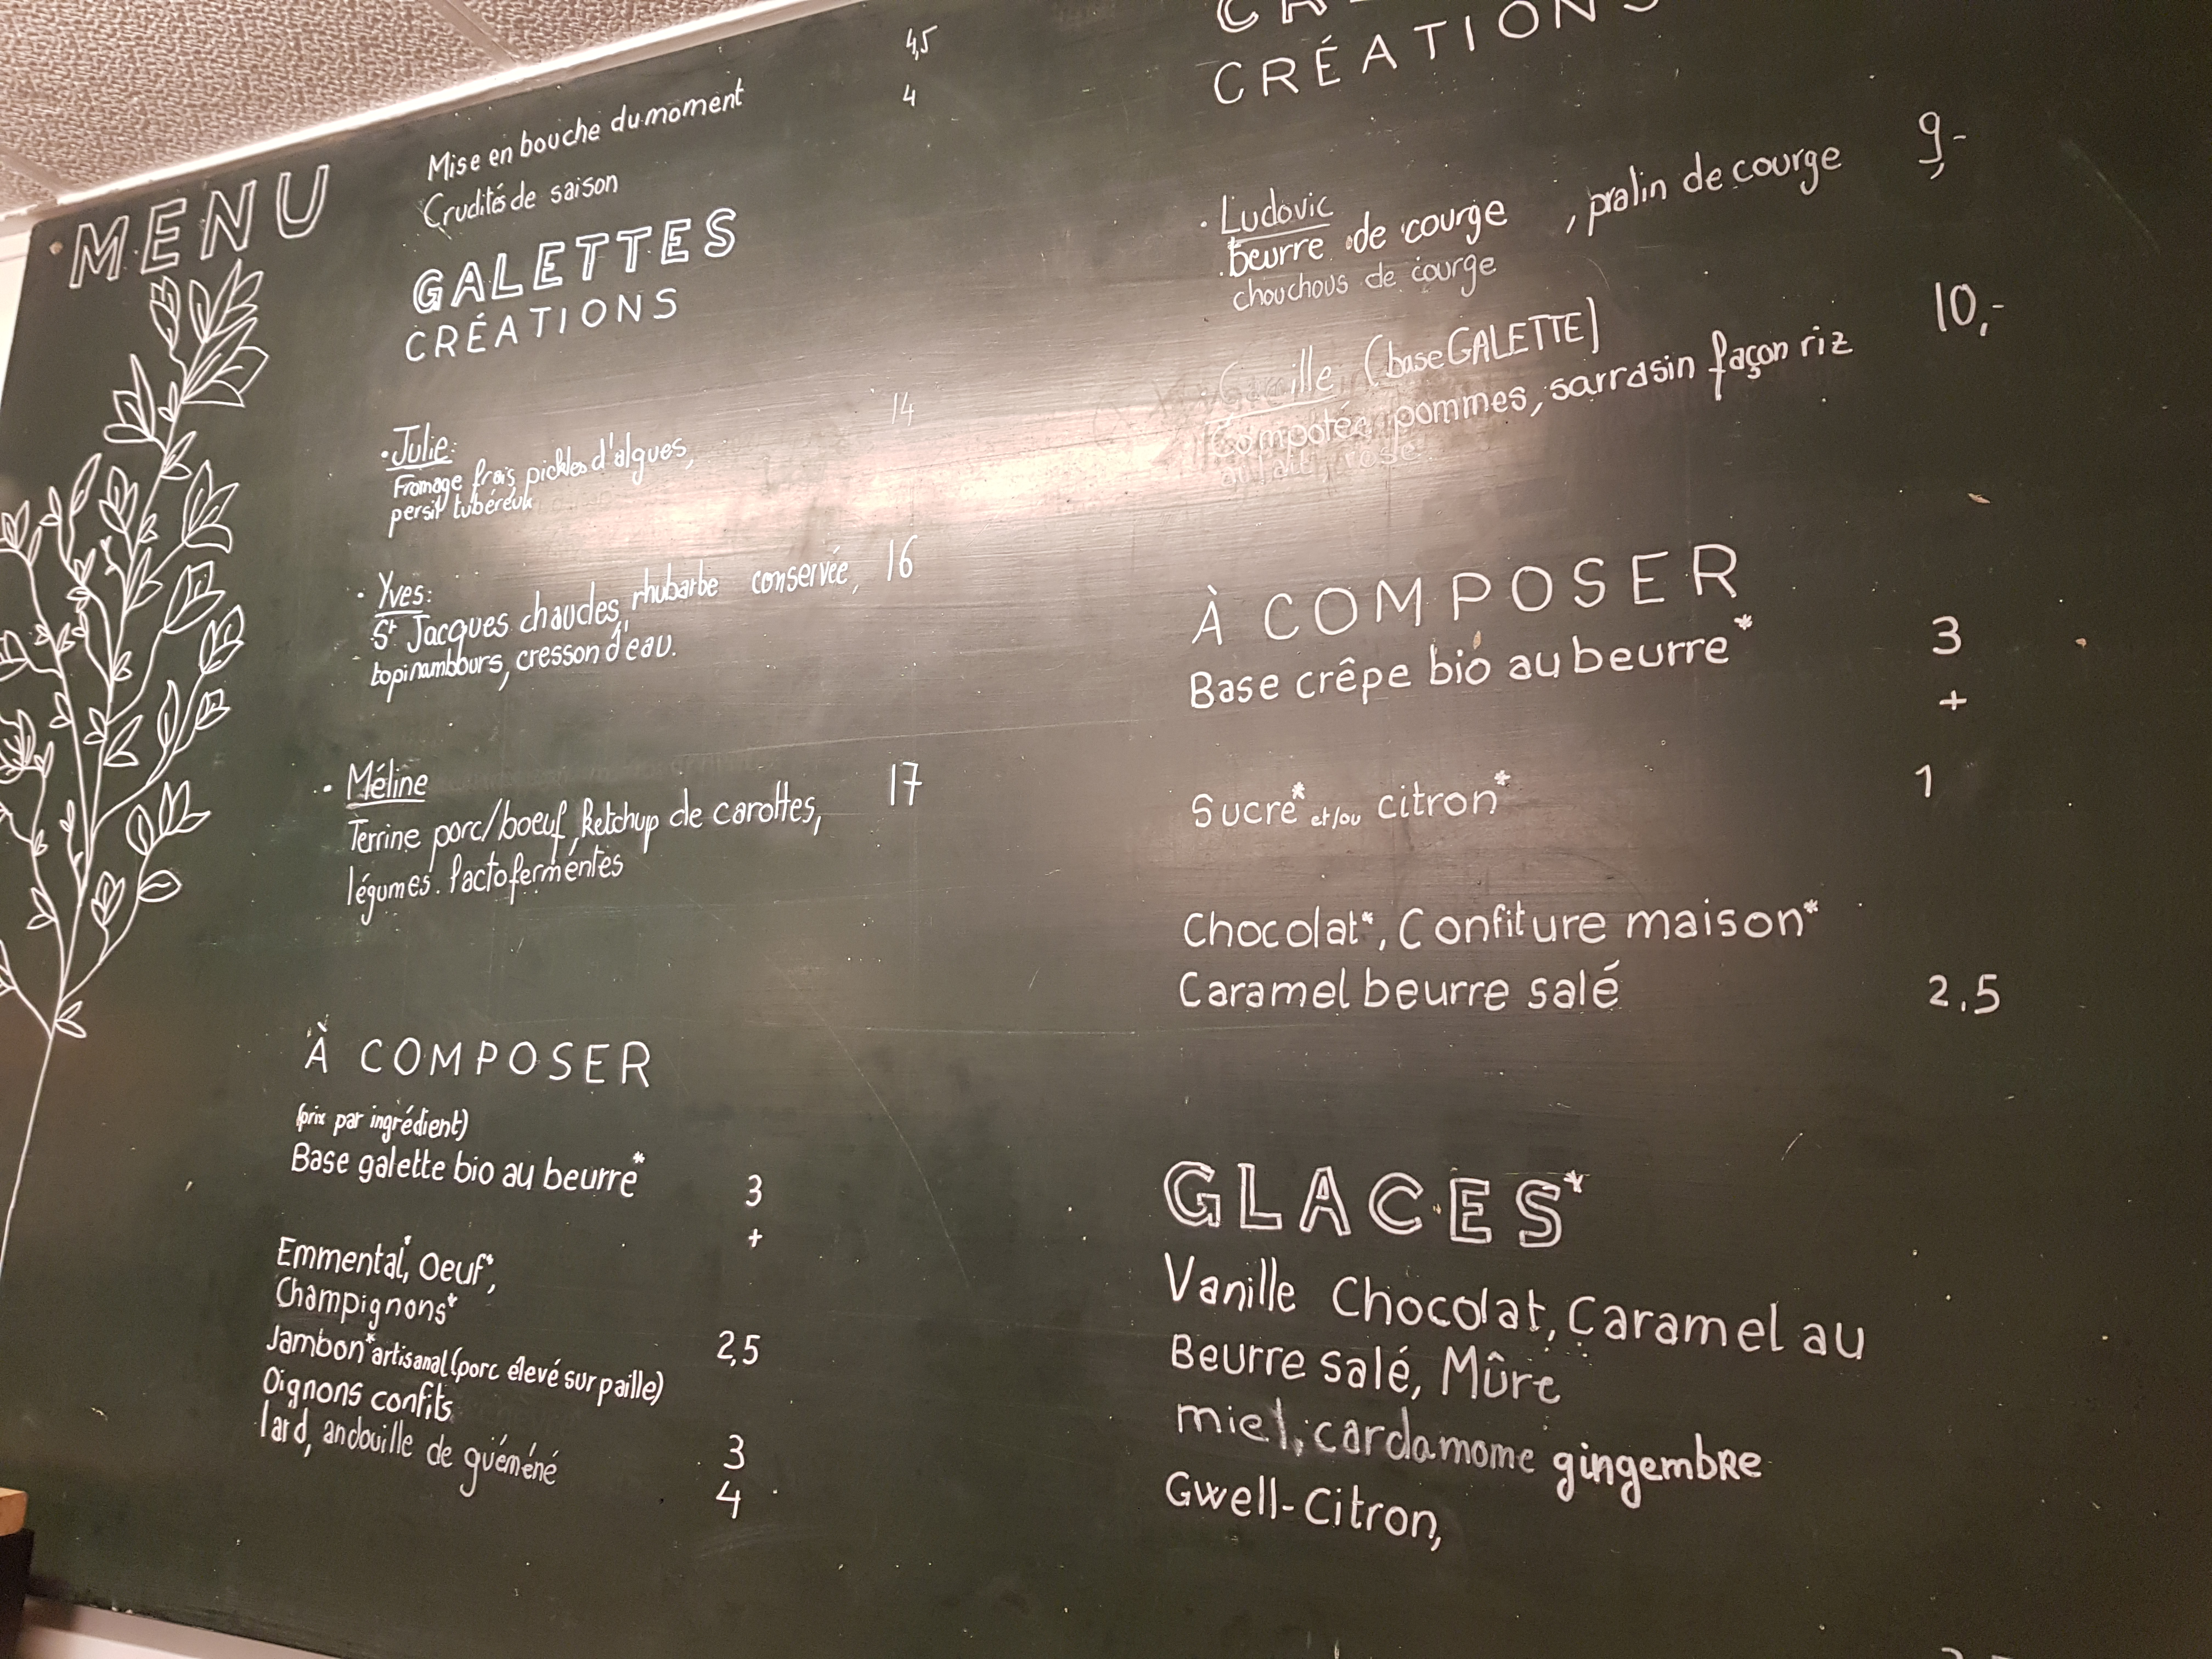 MENU
Mise en bouche du moment 4,5
Crudités de saison 4
GALETTES
CRÉATIONS
• Julie: 14
Fromage frais, pickles d'algues,
persil tubéreux
• Yves:
St Jacques chaudes, rhubarbe conservée, 16
topinambours, cresson d'eau.
• Méline
Terrine porc/boeuf, Ketchup de carottes, 17
légumes lactofermentés
À COMPOSER
(prix par ingrédient)
Base galette bio au beurre* 3
+
Emmental*, Oeuf*,
Champignons* 2,5
Jambon* artisanal (porc élevé sur paille)
Oignons confits 3
lard, andouille de guéméné 4
CRÉATIONS
• Ludovic 9,-
beurre de courge, pralin de courge
chouchous de courge
Camille (base GALETTE) 10,-
Compotée pommes, sarrasin façon riz
au lait, rose.
À COMPOSER
Base crêpe bio au beurre* 3
+
Sucre* et/ou citron* 1
Chocolat*, Confiture maison*
Caramel beurre salé 2,5
GLACES*
Vanille Chocolat, Caramel au
Beurre salé, Mûre
miel, cardamome gingembre
Gwell-Citron,